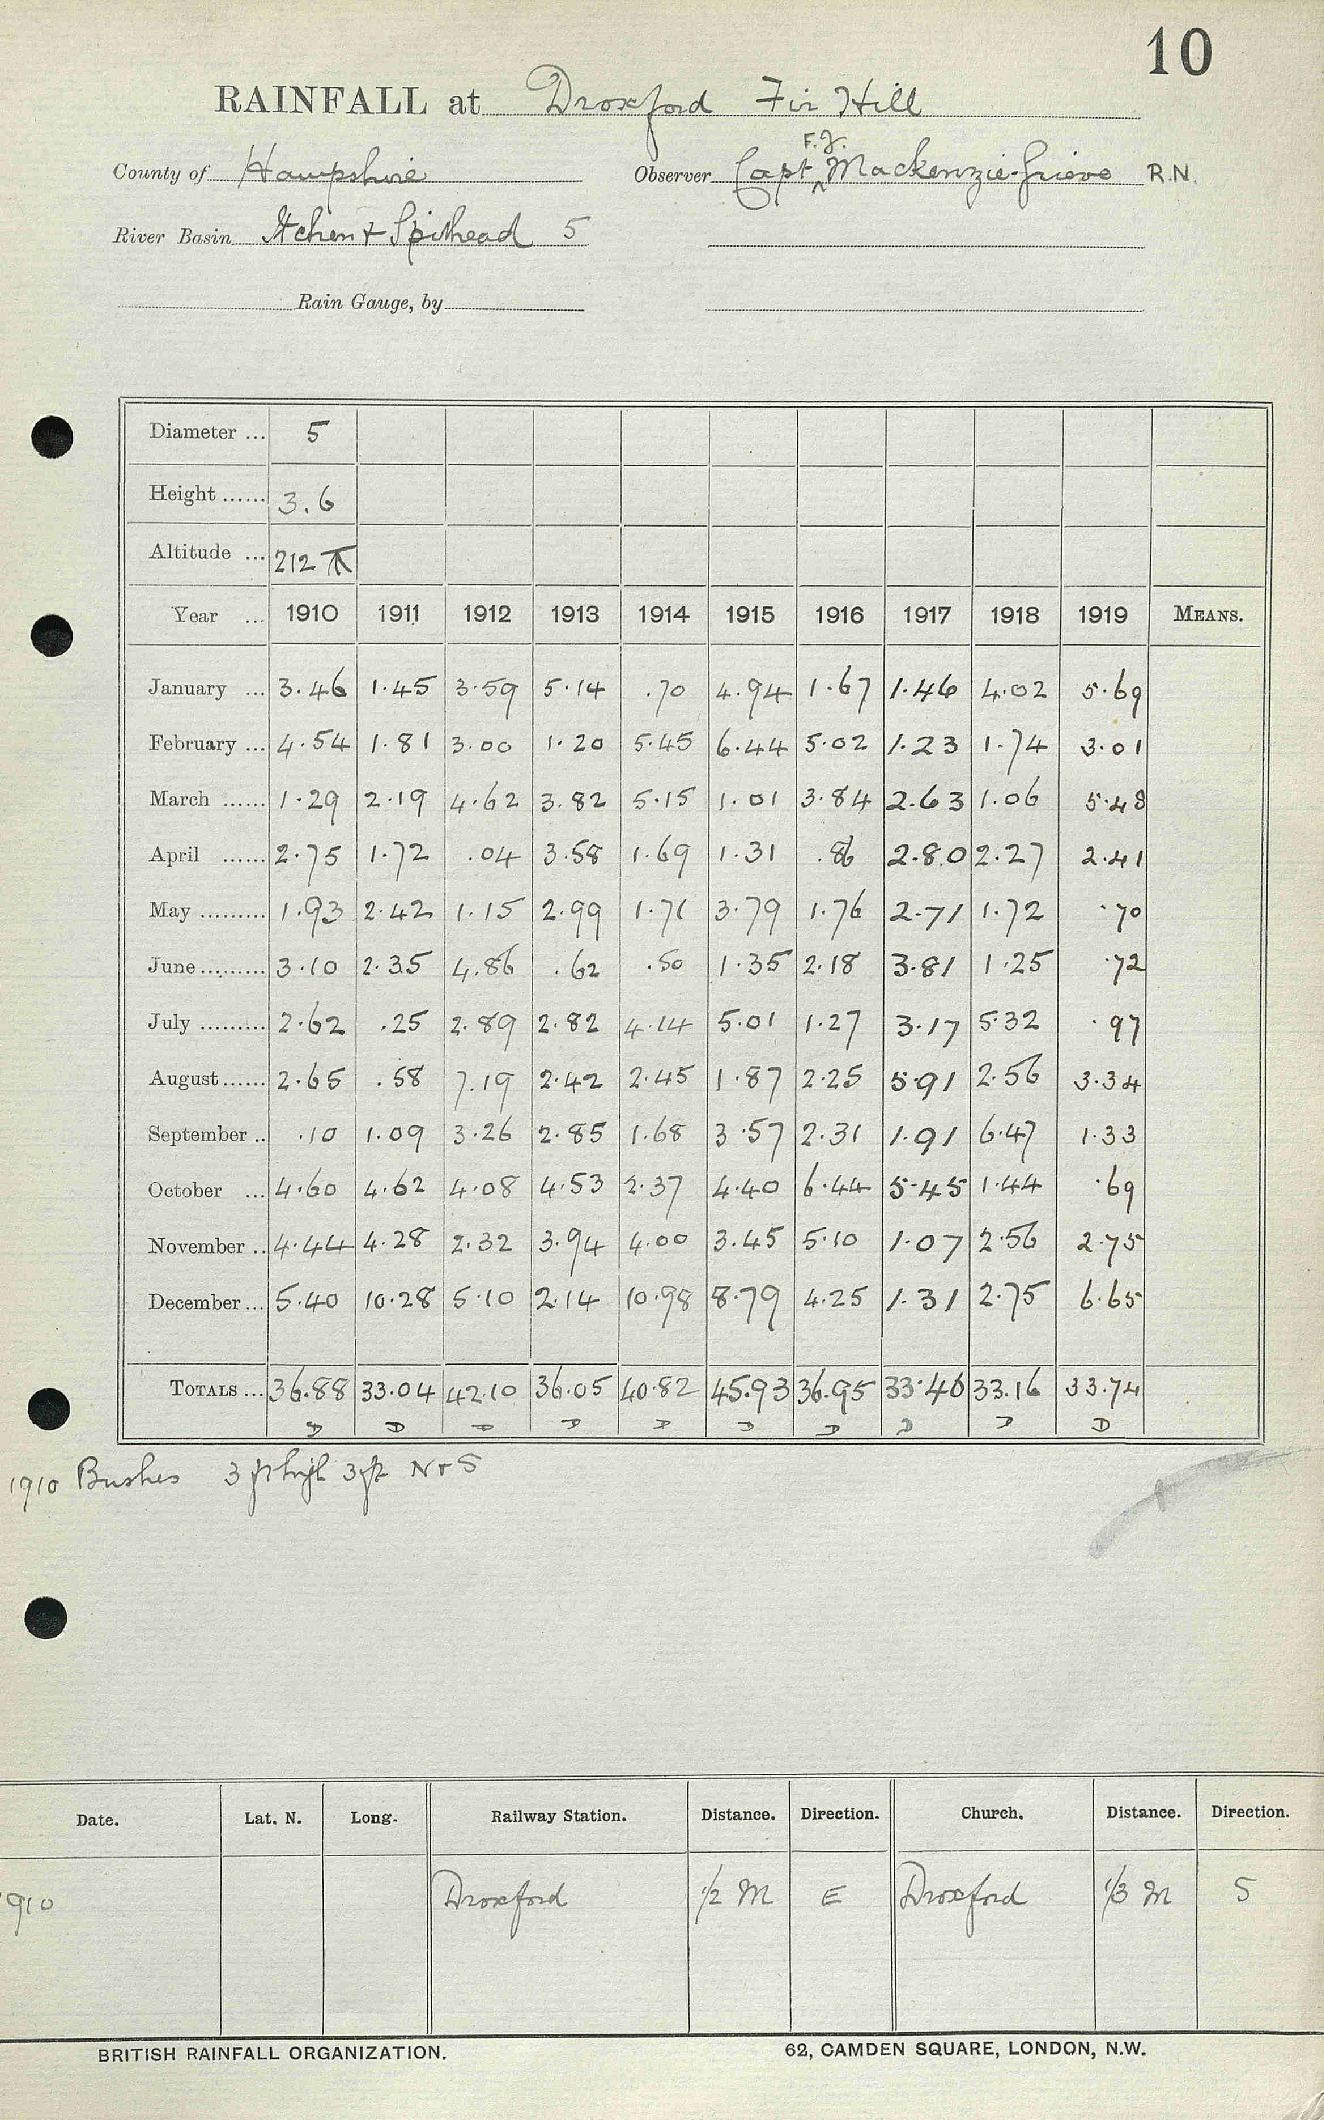 10
RAINFALL at Droxford Fir Hill
F.J.
County of Hampshire Observer Capt Mackenzie-Grieve R.N.
River Basin Itchen & Spithead 5
Rain Gauge, by
Diameter ... 5
Height ...... 3.6
Altitude ... 212
Year ... 1910 1911 1912 1913 1914 1915 1916 1917 1918 1919 MEANS.
January ... 3.46 1.45 3.59 5.14 .70 4.94 1.67 1.46 4.02 5.69
February ... 4.54 1.81 3.00 1.20 5.45 6.44 5.02 1.23 1.74 3.01
March ...... 1.29 2.19 4.62 3.82 5.15 1.01 3.84 2.63 1.06 5.48
April ...... 2.75 1.72 .04 3.58 1.69 1.31 .86 2.80 2.27 2.41
May ......... 1.93 2.42 1.15 2.99 1.71 3.79 1.76 2.71 1.72 .70
June ......... 3.10 2.35 4.86 .62 .50 1.35 2.18 3.81 1.25 .72
July ......... 2.62 .25 2.89 2.82 4.14 5.01 1.27 3.17 5.32 .97
August ...... 2.65 .58 7.19 2.42 2.45 1.87 2.25 5.91 2.56 3.34
September .. .10 1.09 3.26 2.85 1.68 3.57 2.31 1.91 6.47 1.33
October ... 4.60 4.62 4.08 4.53 2.37 4.40 6.44 5.45 1.44 .69
November .. 4.44 4.28 2.32 3.94 4.00 3.45 5.10 1.07 2.56 2.75
December ... 5.40 10.28 5.10 2.14 10.98 8.79 4.25 1.31 2.75 6.65
TOTALS ... 36.88 33.04 42.10 36.05 40.82 45.93 36.95 33.46 33.16 33.74
D D D D D D D D D D
1910 Bushes 3 ft high 3 ft N & S
Date. Lat. N. Long. Railway Station. Distance. Direction. Church. Distance. Direction.
910 Droxford 1/2 M E Droxford 1/3 M S
BRITISH RAINFALL ORGANIZATION. 62, CAMDEN SQUARE, LONDON, N.W.